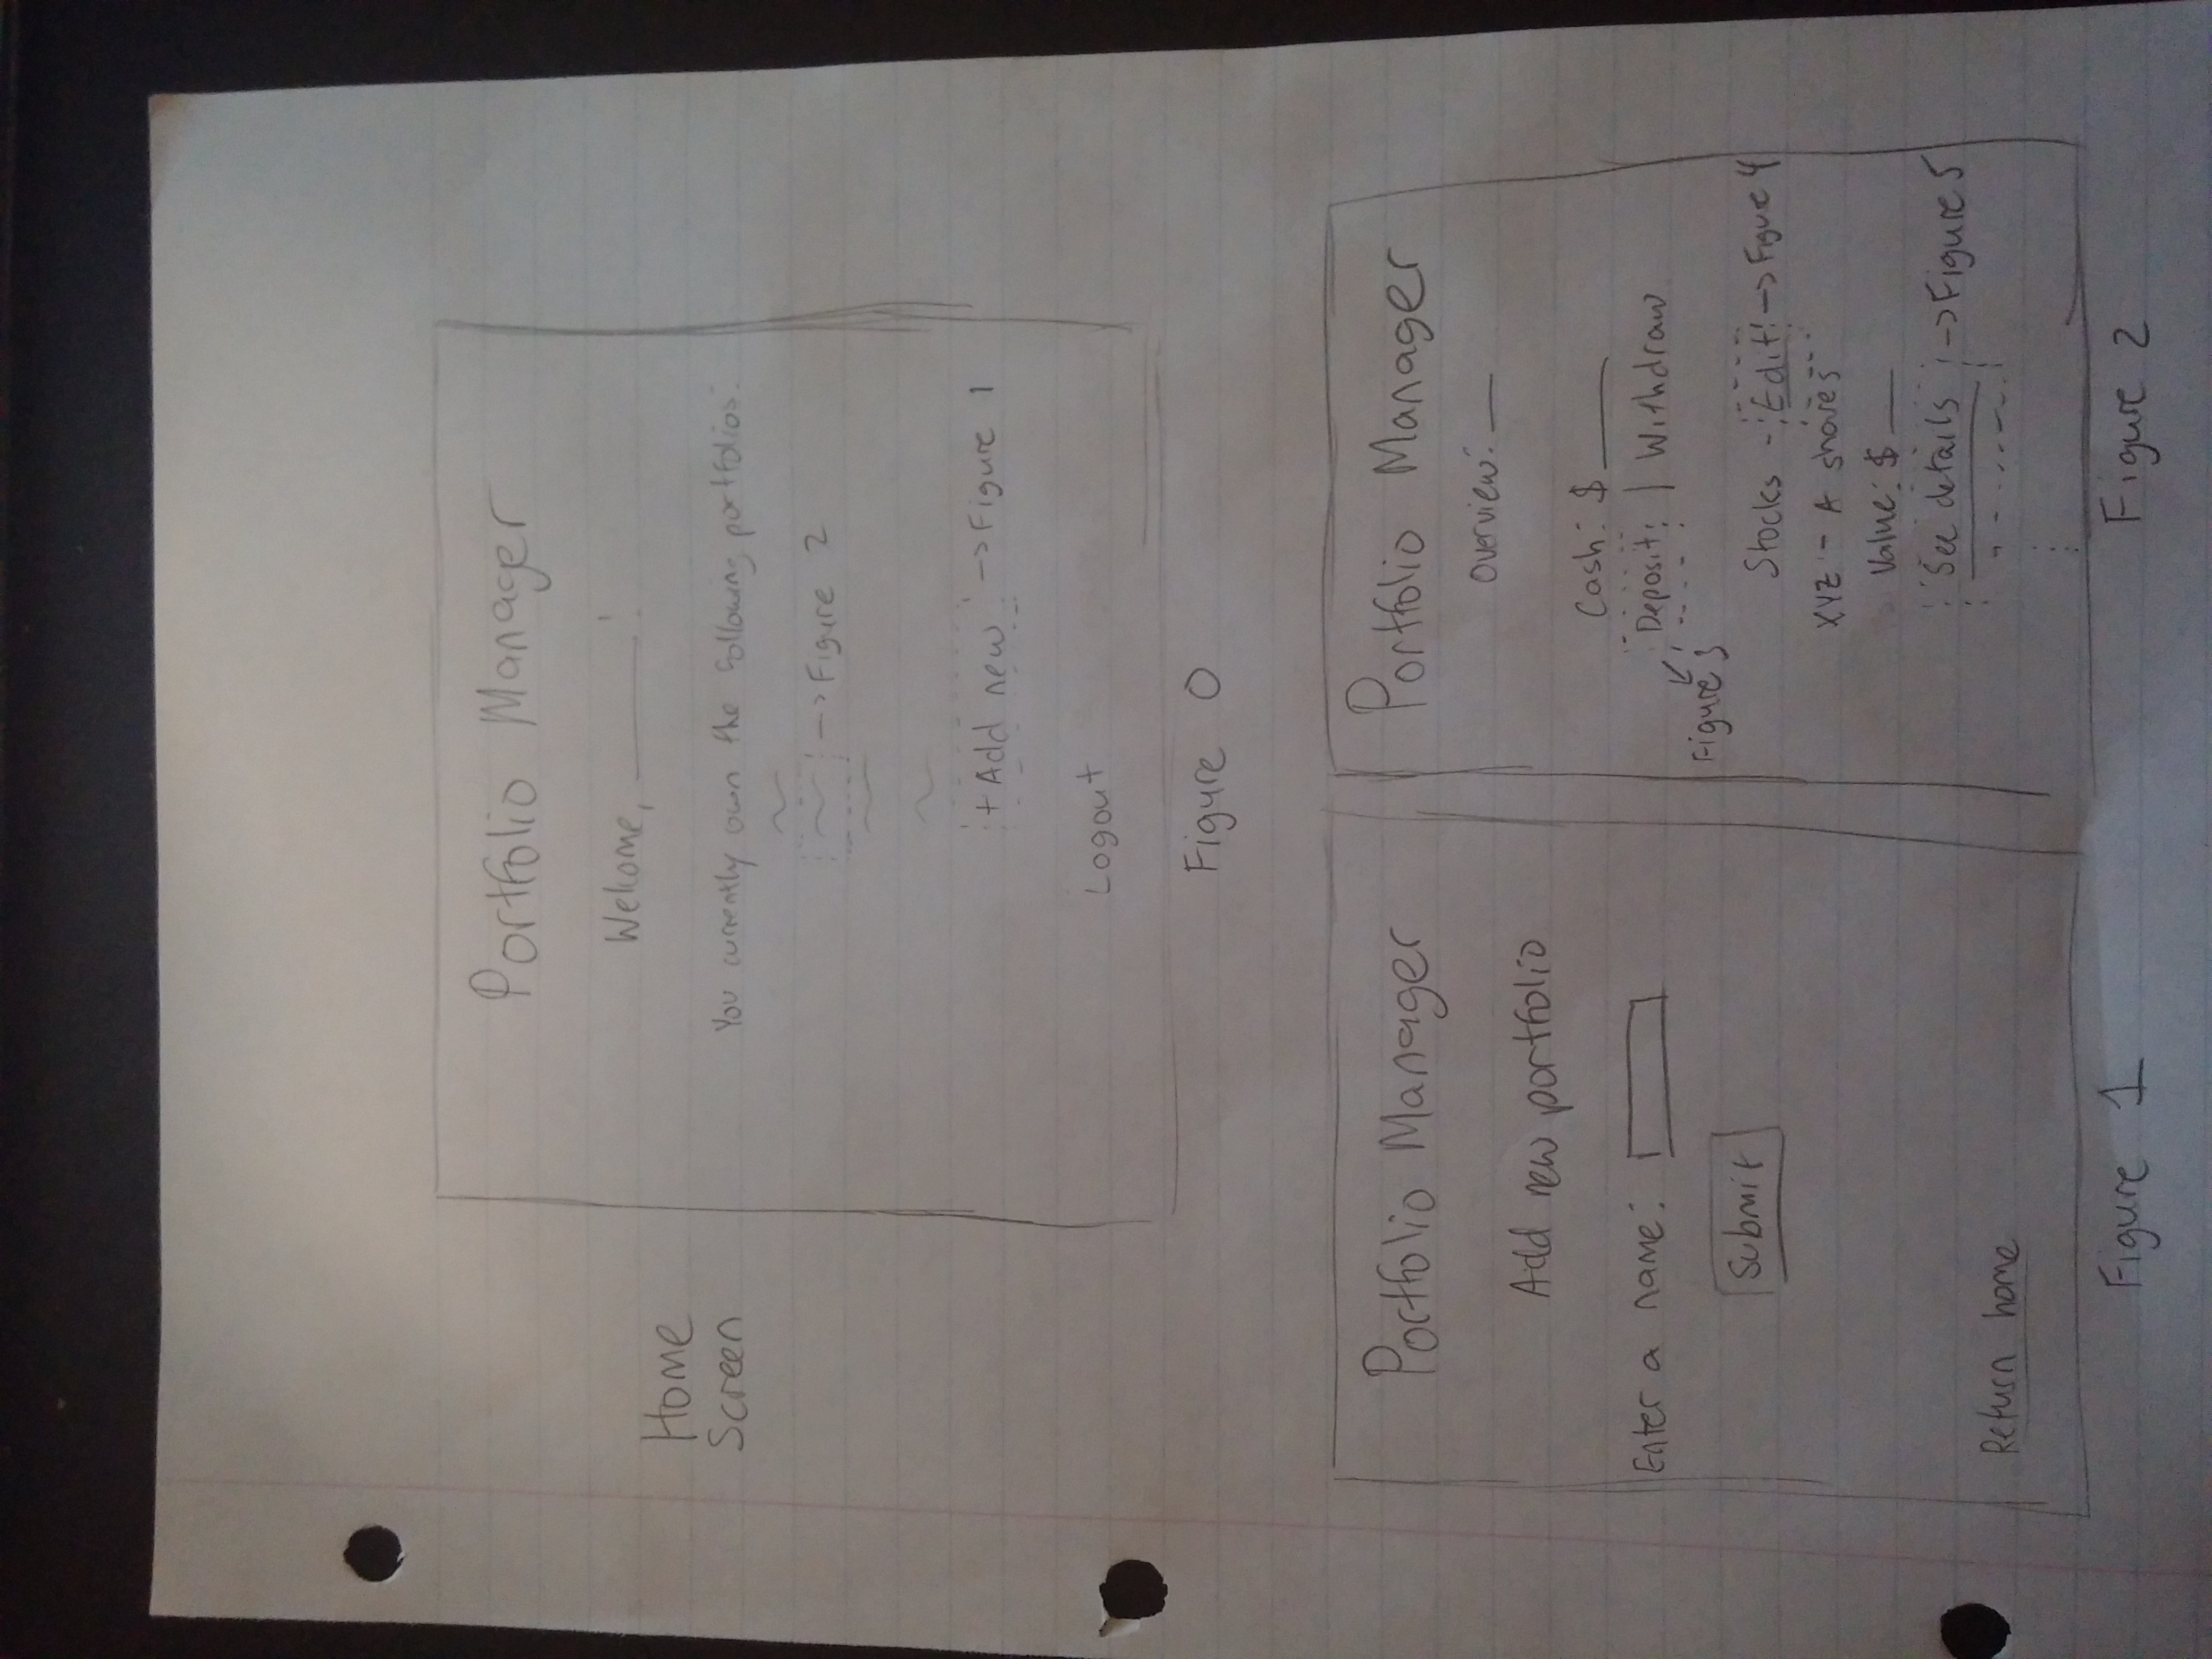 Portfolio Manager
Welcome, ______!
Home
Screen
You currently own the following portfolios:
-> Figure 2
+ Add new -> Figure 1
Logout
Figure 0
Portfolio Manager
Add new portfolio
Enter a name:
Submit
Return home
Figure 1
Portfolio Manager
Overview: __
Cash: $ ____
Deposit | Withdraw
Figure 3
Stocks - Edit -> Figure 4
XYZ - A shares
Value: $ __
See details -> Figure 5
Figure 2